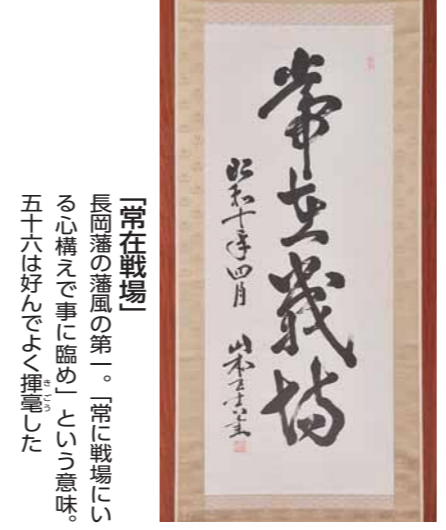 常在戦場
昭和十年四月 山本五十六書
「常在戦場」
長岡藩の藩風の第一。「常に戦場にい
る心構えで事に臨め」という意味。
五十六は好んでよく揮毫した
きごう